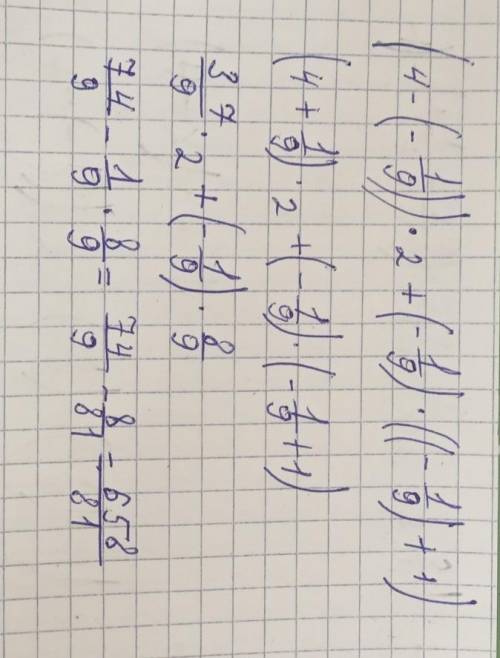 (4 - (- 1/9)) · 2 + (- 1/9) · ((- 1/9) + 1)
(4 + 1/9) · 2 + (- 1/9) · (- 1/9 + 1)
37/9 · 2 + (- 1/9) · 8/9
74/9 - 1/9 · 8/9 = 74/9 - 8/81 = 658/81